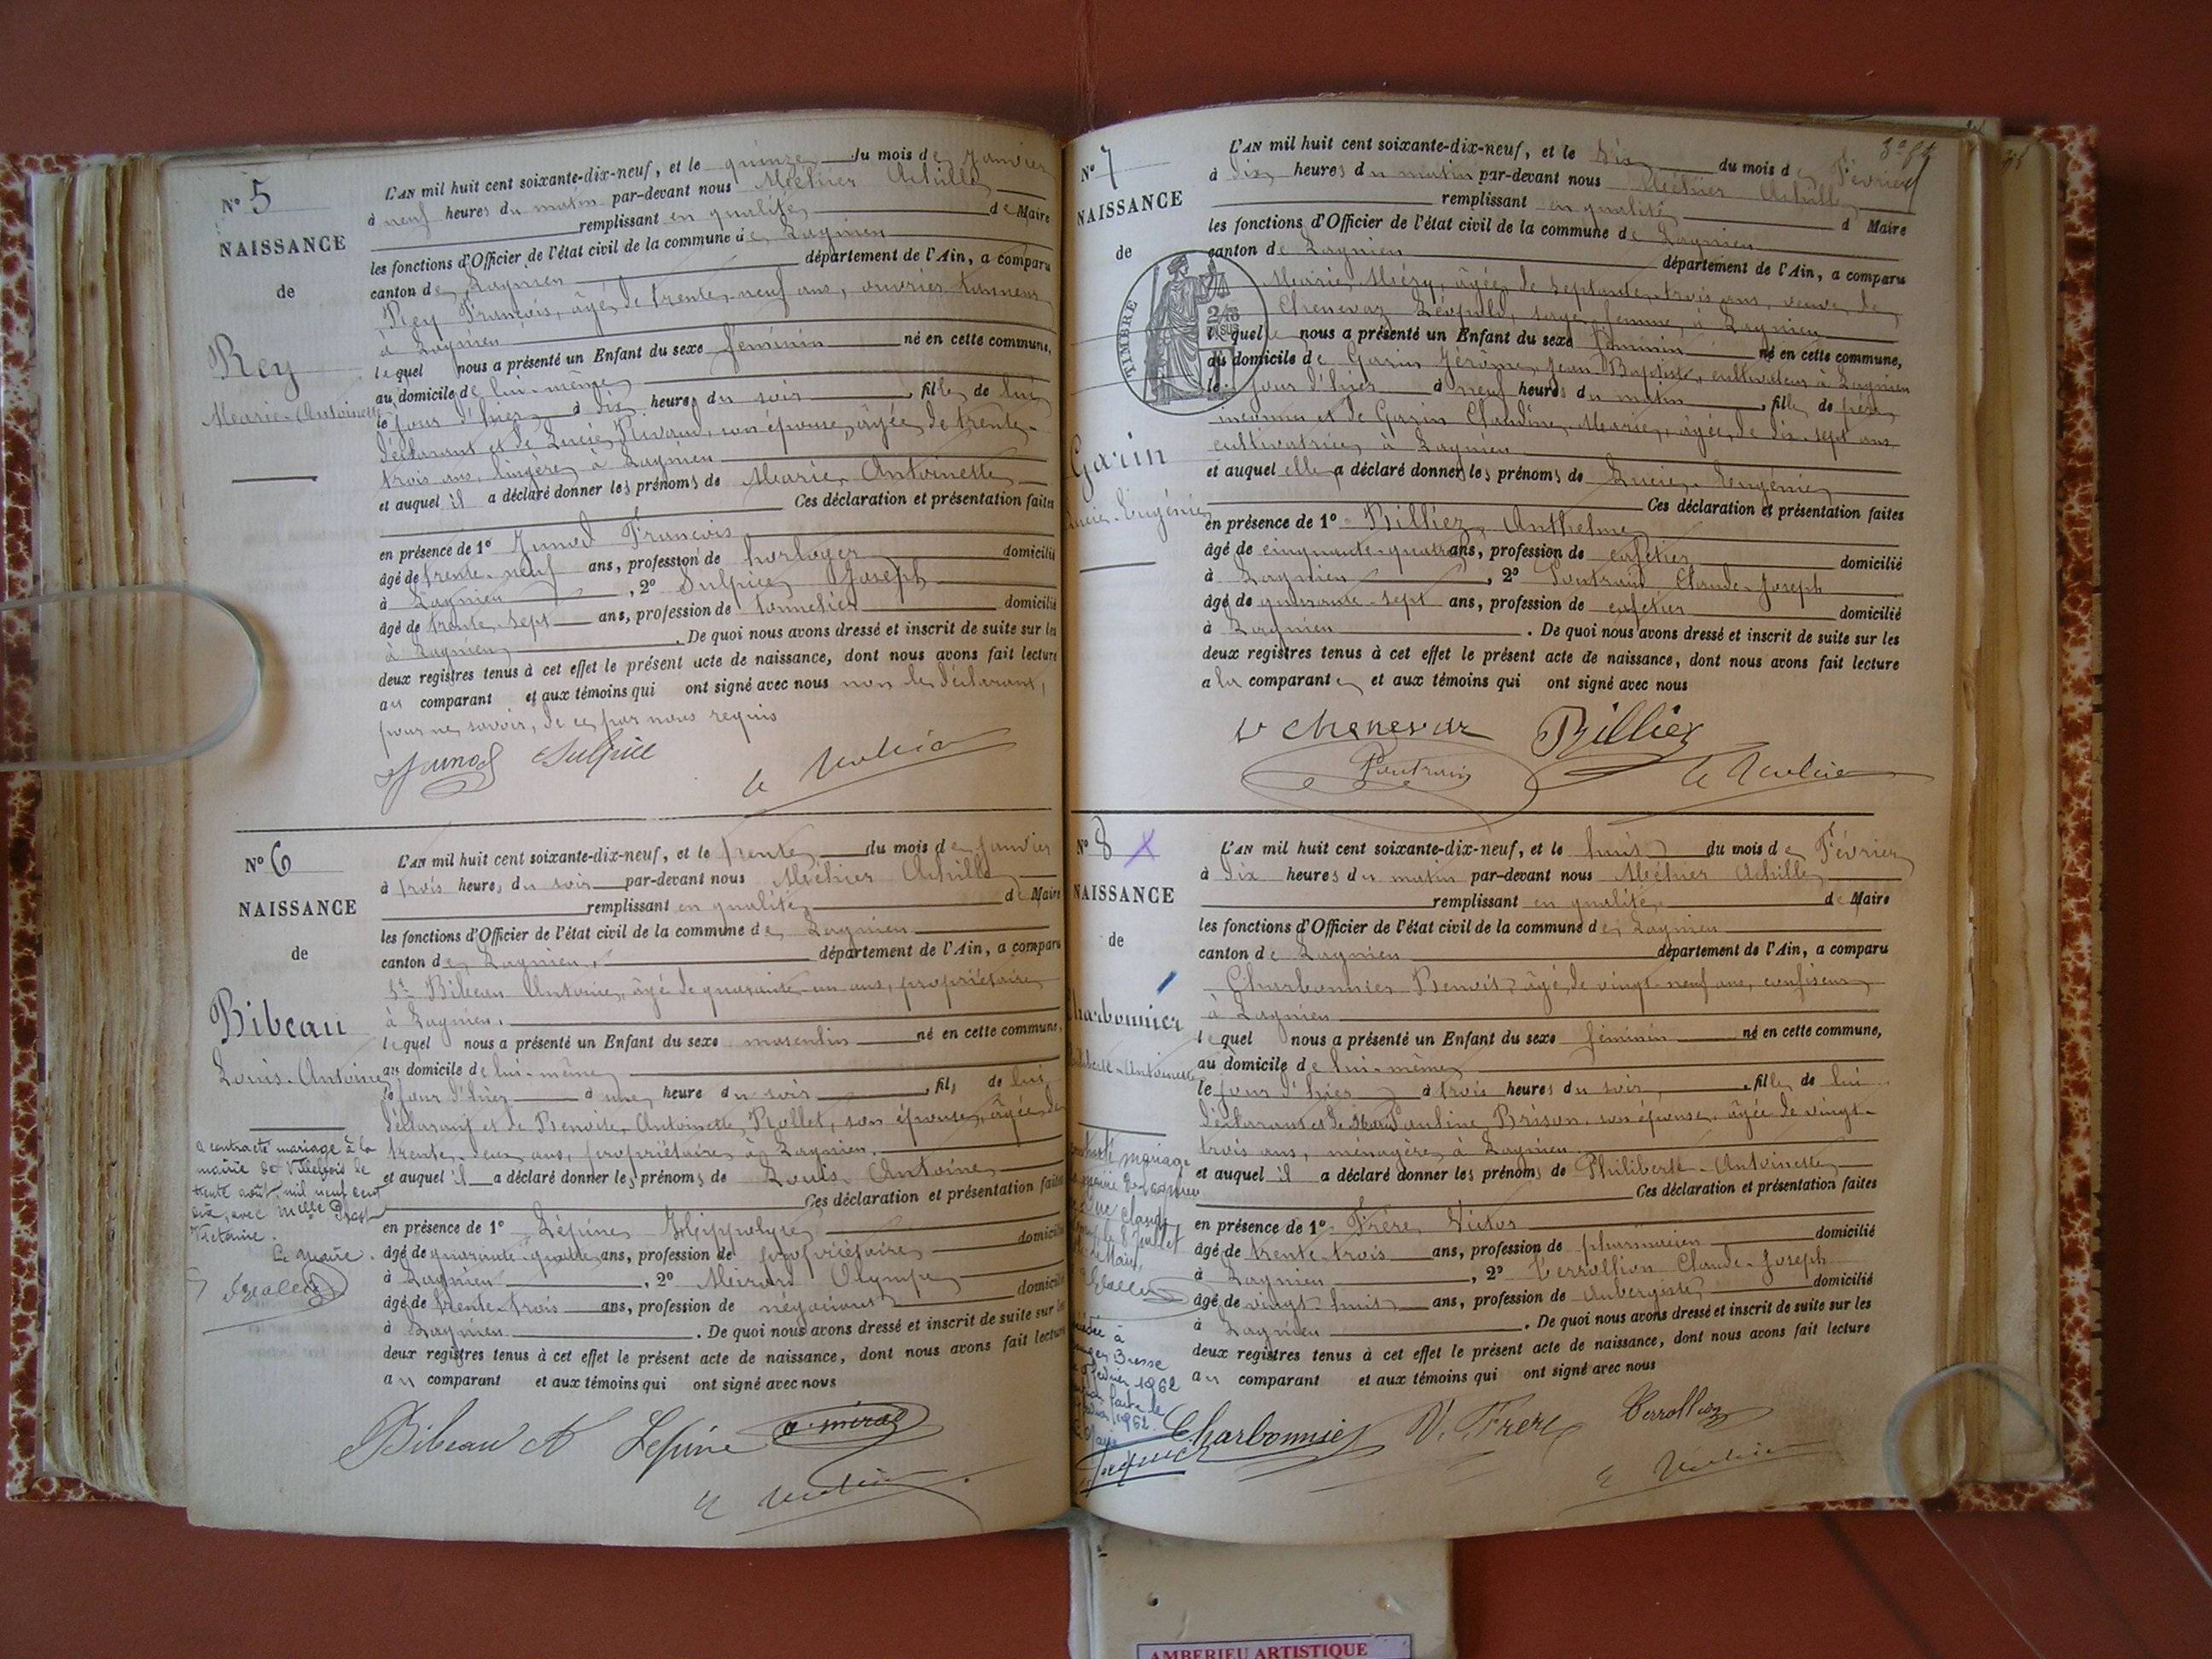 N° 5
NAISSANCE
de
Rey
Marie-Antoinette
L'AN mil huit cent soixante-dix-neuf, et le quinze du mois de Janvier
à neuf heures du matin par-devant nous Méchier Achille
remplissant en qualité de Maire
les fonctions d'Officier de l'état civil de la commune de Lagnieu
canton de Lagnieu département de l'Ain, a comparu
Rey François, âgé de trente-neuf ans, ouvrier tanneur
à Lagnieu
lequel nous a présenté un Enfant du sexe féminin né en cette commune,
au domicile de lui-même
le jour d'hier à dix heures du soir, fille de lui
déclarant et de Lucie son épouse, âgée de trente-
trois ans, lingère à Lagnieu
et auquel il a déclaré donner les prénoms de Marie Antoinette
Ces déclaration et présentation faites
en présence de 1° Junod François
âgé de trente-neuf ans, profession de horloger domicilié
à Lagnieu, 2° Sulpice Joseph
âgé de trente-sept ans, profession de tonnelier domicilié
à Lagnieu. De quoi nous avons dressé et inscrit de suite sur les
deux registres tenus à cet effet le présent acte de naissance, dont nous avons fait lecture
au comparant et aux témoins qui ont signé avec nous non le déclarant,
pour ne savoir, de ce par nous requis
Junod Sulpice
N° 6
NAISSANCE
de
Bibeau
Louis-Antoine
a contracté mariage à la
mairie de Villebois le
trente août mil neuf cent
six, avec Melle
Victorine.
Le Maire.
L'AN mil huit cent soixante-dix-neuf, et le trente du mois de Janvier
à trois heures du soir par-devant nous Méchier Achille
remplissant en qualité de Maire
les fonctions d'Officier de l'état civil de la commune de Lagnieu
canton de Lagnieu département de l'Ain, a comparu
Sr Bibeau Antoine, âgé de quarante-un ans, propriétaire
à Lagnieu.
lequel nous a présenté un Enfant du sexe masculin né en cette commune,
au domicile de lui-même
le jour d'hier à une heure du soir, fils de lui
déclarant et de Benoite Antoinette Rollet, son épouse, âgée de
trente-deux ans, propriétaire à Lagnieu.
et auquel il a déclaré donner les prénoms de Louis Antoine
Ces déclaration et présentation faites
en présence de 1° Lépine Hippolyte
âgé de quarante-quatre ans, profession de propriétaire domicilié
à Lagnieu, 2° Miraud Olympe
âgé de trente-trois ans, profession de négociant domicilié
à Lagnieu. De quoi nous avons dressé et inscrit de suite sur les
deux registres tenus à cet effet le présent acte de naissance, dont nous avons fait lecture
au comparant et aux témoins qui ont signé avec nous
Bibeau A Lépine
N° 7
NAISSANCE
de
Garin
Lucie-Eugénie
TIMBRE
L'AN mil huit cent soixante-dix-neuf, et le six du mois de Février
à dix heures du matin par-devant nous Méchier Achille
remplissant en qualité d Maire
les fonctions d'Officier de l'état civil de la commune de Lagnieu
canton de Lagnieu département de l'Ain, a comparu
Marie Miéry, âgée de septante-trois ans, veuve de
Chenevaz Léopold, sage-femme, à Lagnieu
laquelle nous a présenté un Enfant du sexe féminin né en cette commune,
au domicile de Garin Jérôme, Jean-Baptiste, cultivateur à Lagnieu
le jour d'hier à neuf heures du matin, fille de père
inconnu et de Garin Claudine Marie, âgée de dix-sept ans
cultivatrice, à Lagnieu
et auquel elle a déclaré donner les prénoms de Lucie-Eugénie
Ces déclaration et présentation faites
en présence de 1° Billiez Anthelme
âgé de cinquante-quatre ans, profession de cafetier domicilié
à Lagnieu, 2° Claude-Joseph
âgé de quarante-sept ans, profession de cafetier domicilié
à Lagnieu. De quoi nous avons dressé et inscrit de suite sur les
deux registres tenus à cet effet le présent acte de naissance, dont nous avons fait lecture
a la comparante et aux témoins qui ont signé avec nous
Ve Chenevaz Billiez
N° 8
NAISSANCE
de
Charbonnier
Philiberte-Antoinette
mariage
Claude
juillet
Maire
à
Bresse
1962
1962
L'AN mil huit cent soixante-dix-neuf, et le huit du mois de Février
à dix heures du matin par-devant nous Méchier Achille
remplissant en qualité de Maire
les fonctions d'Officier de l'état civil de la commune de Lagnieu
canton de Lagnieu département de l'Ain, a comparu
Charbonnier Benoit, âgé de vingt-neuf ans, confiseur
à Lagnieu
lequel nous a présenté un Enfant du sexe féminin né en cette commune,
au domicile de lui-même
le jour d'hier à trois heures du soir, fille de lui
déclarant et de Pauline Brison, son épouse, âgée de vingt-
trois ans, ménagère à Lagnieu
et auquel il a déclaré donner les prénoms de Philiberte-Antoinette
Ces déclaration et présentation faites
en présence de 1° Frère Victor
âgé de trente-trois ans, profession de pharmacien domicilié
à Lagnieu, 2° Verrollion Claude-Joseph
âgé de vingt-huit ans, profession de aubergiste domicilié
à Lagnieu. De quoi nous avons dressé et inscrit de suite sur les
deux registres tenus à cet effet le présent acte de naissance, dont nous avons fait lecture
au comparant et aux témoins qui ont signé avec nous
Charbonnier V. Frere Verrollion
AMBERIEU ARTISTIQUE